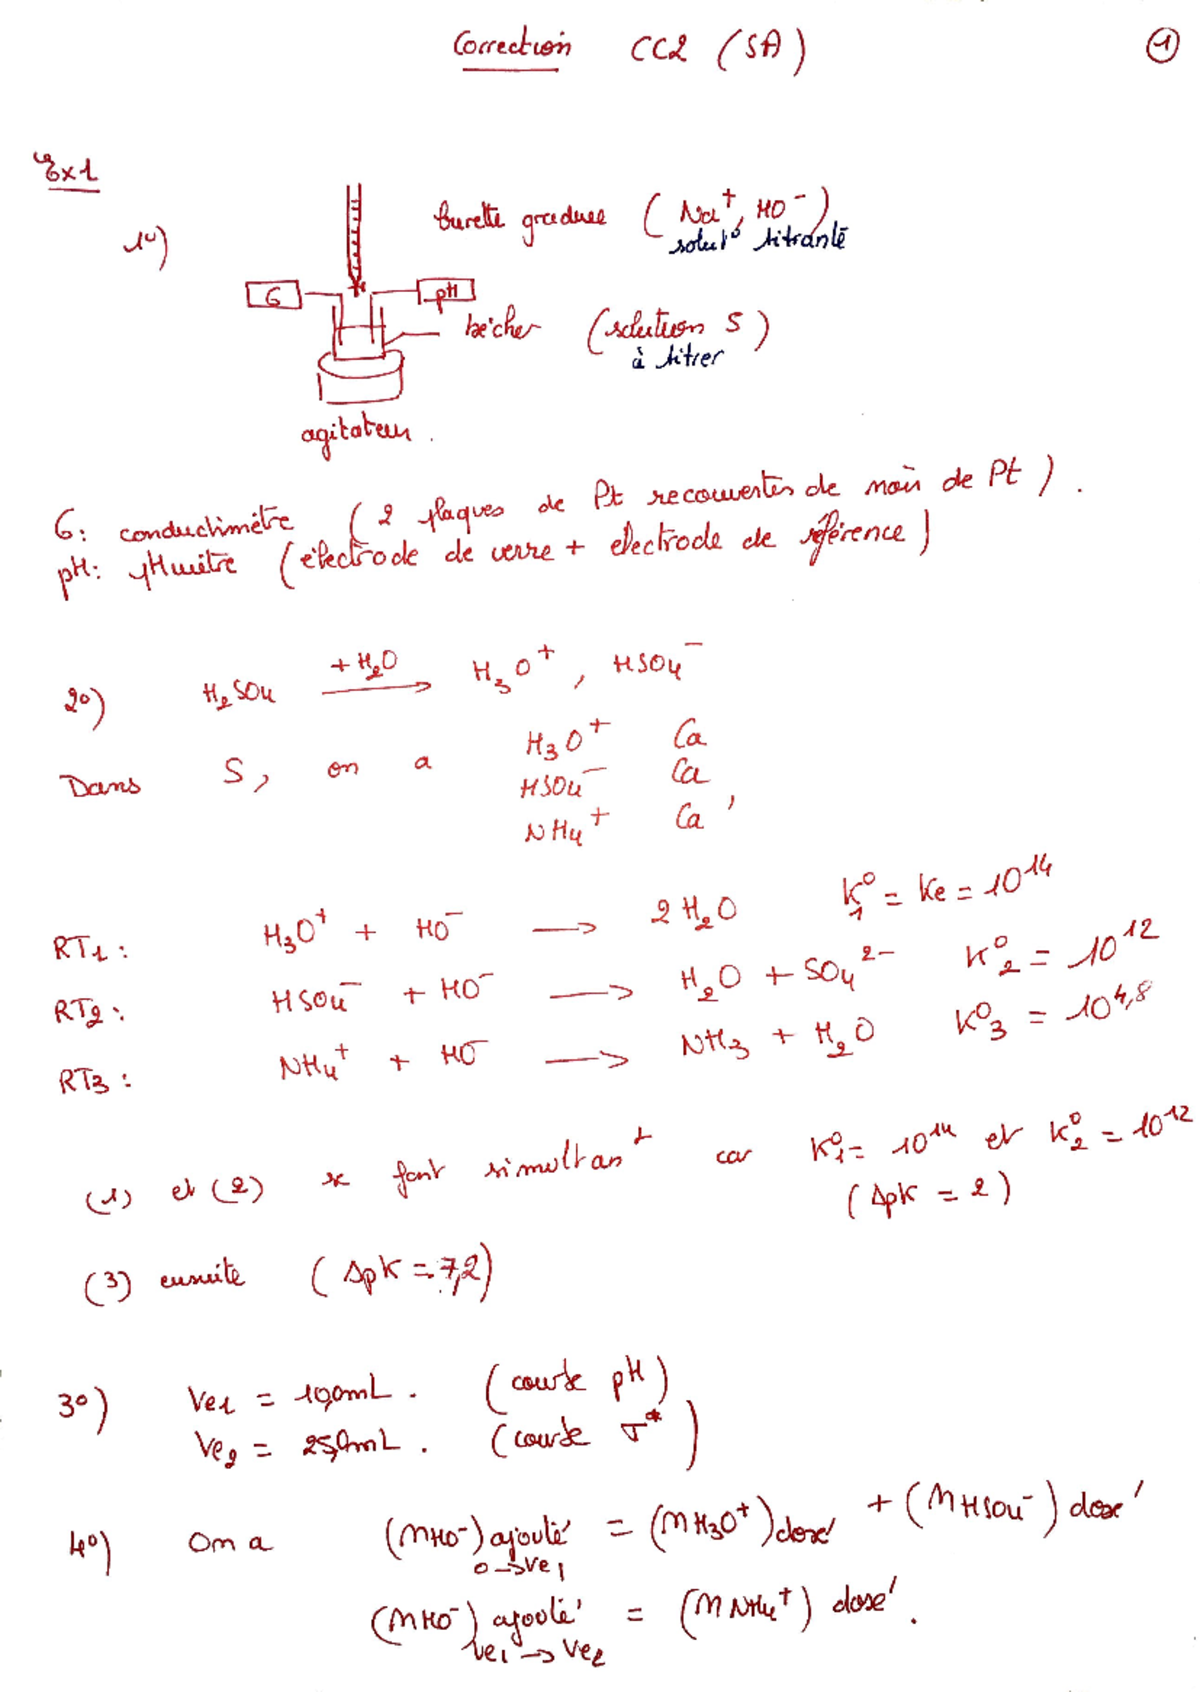 Correction CC2 (SA) ①
Ex1
1°)
burette graduée (Na⁺, HO⁻)
solut° titranté
G pH
bécher (solution S)
à titrer
agitateur.
G: conductimètre (2 plaques de Pt recouvertes de noir de Pt).
pH: pHmètre (électrode de verre + electrode de référence)
2°) H₂SO₄ + H₂O → H₃O⁺, HSO₄⁻
Dans S, on a H₃O⁺ Ca
HSO₄⁻ Ca
NH₄⁺ Ca'
RT1: H₃O⁺ + HO⁻ → 2 H₂O K₁⁰ = Ke = 10¹⁴
RT2: HSO₄⁻ + HO⁻ → H₂O + SO₄²⁻ K⁰₂ = 10¹²
RT3: NH₄⁺ + HO⁻ → NH₃ + H₂O K⁰₃ = 10⁴,⁸
(1) et (2) se font simultan^t car K⁰₁ = 10¹⁴ et K⁰₂ = 10¹²
(ΔpK = 2)
(3) ensuite (ΔpK = 7,2)
3°) Ve₁ = 10,0mL. (courbe pH)
Ve₂ = 25,0mL. (courbe σ*)
4°) On a (nHO⁻) ajouté = (nH₃O⁺) dosé + (nHSO₄⁻) dosé
0→Ve₁
(nHO⁻) ajouté = (nNH₄⁺) dosé.
Ve₁ → Ve₂